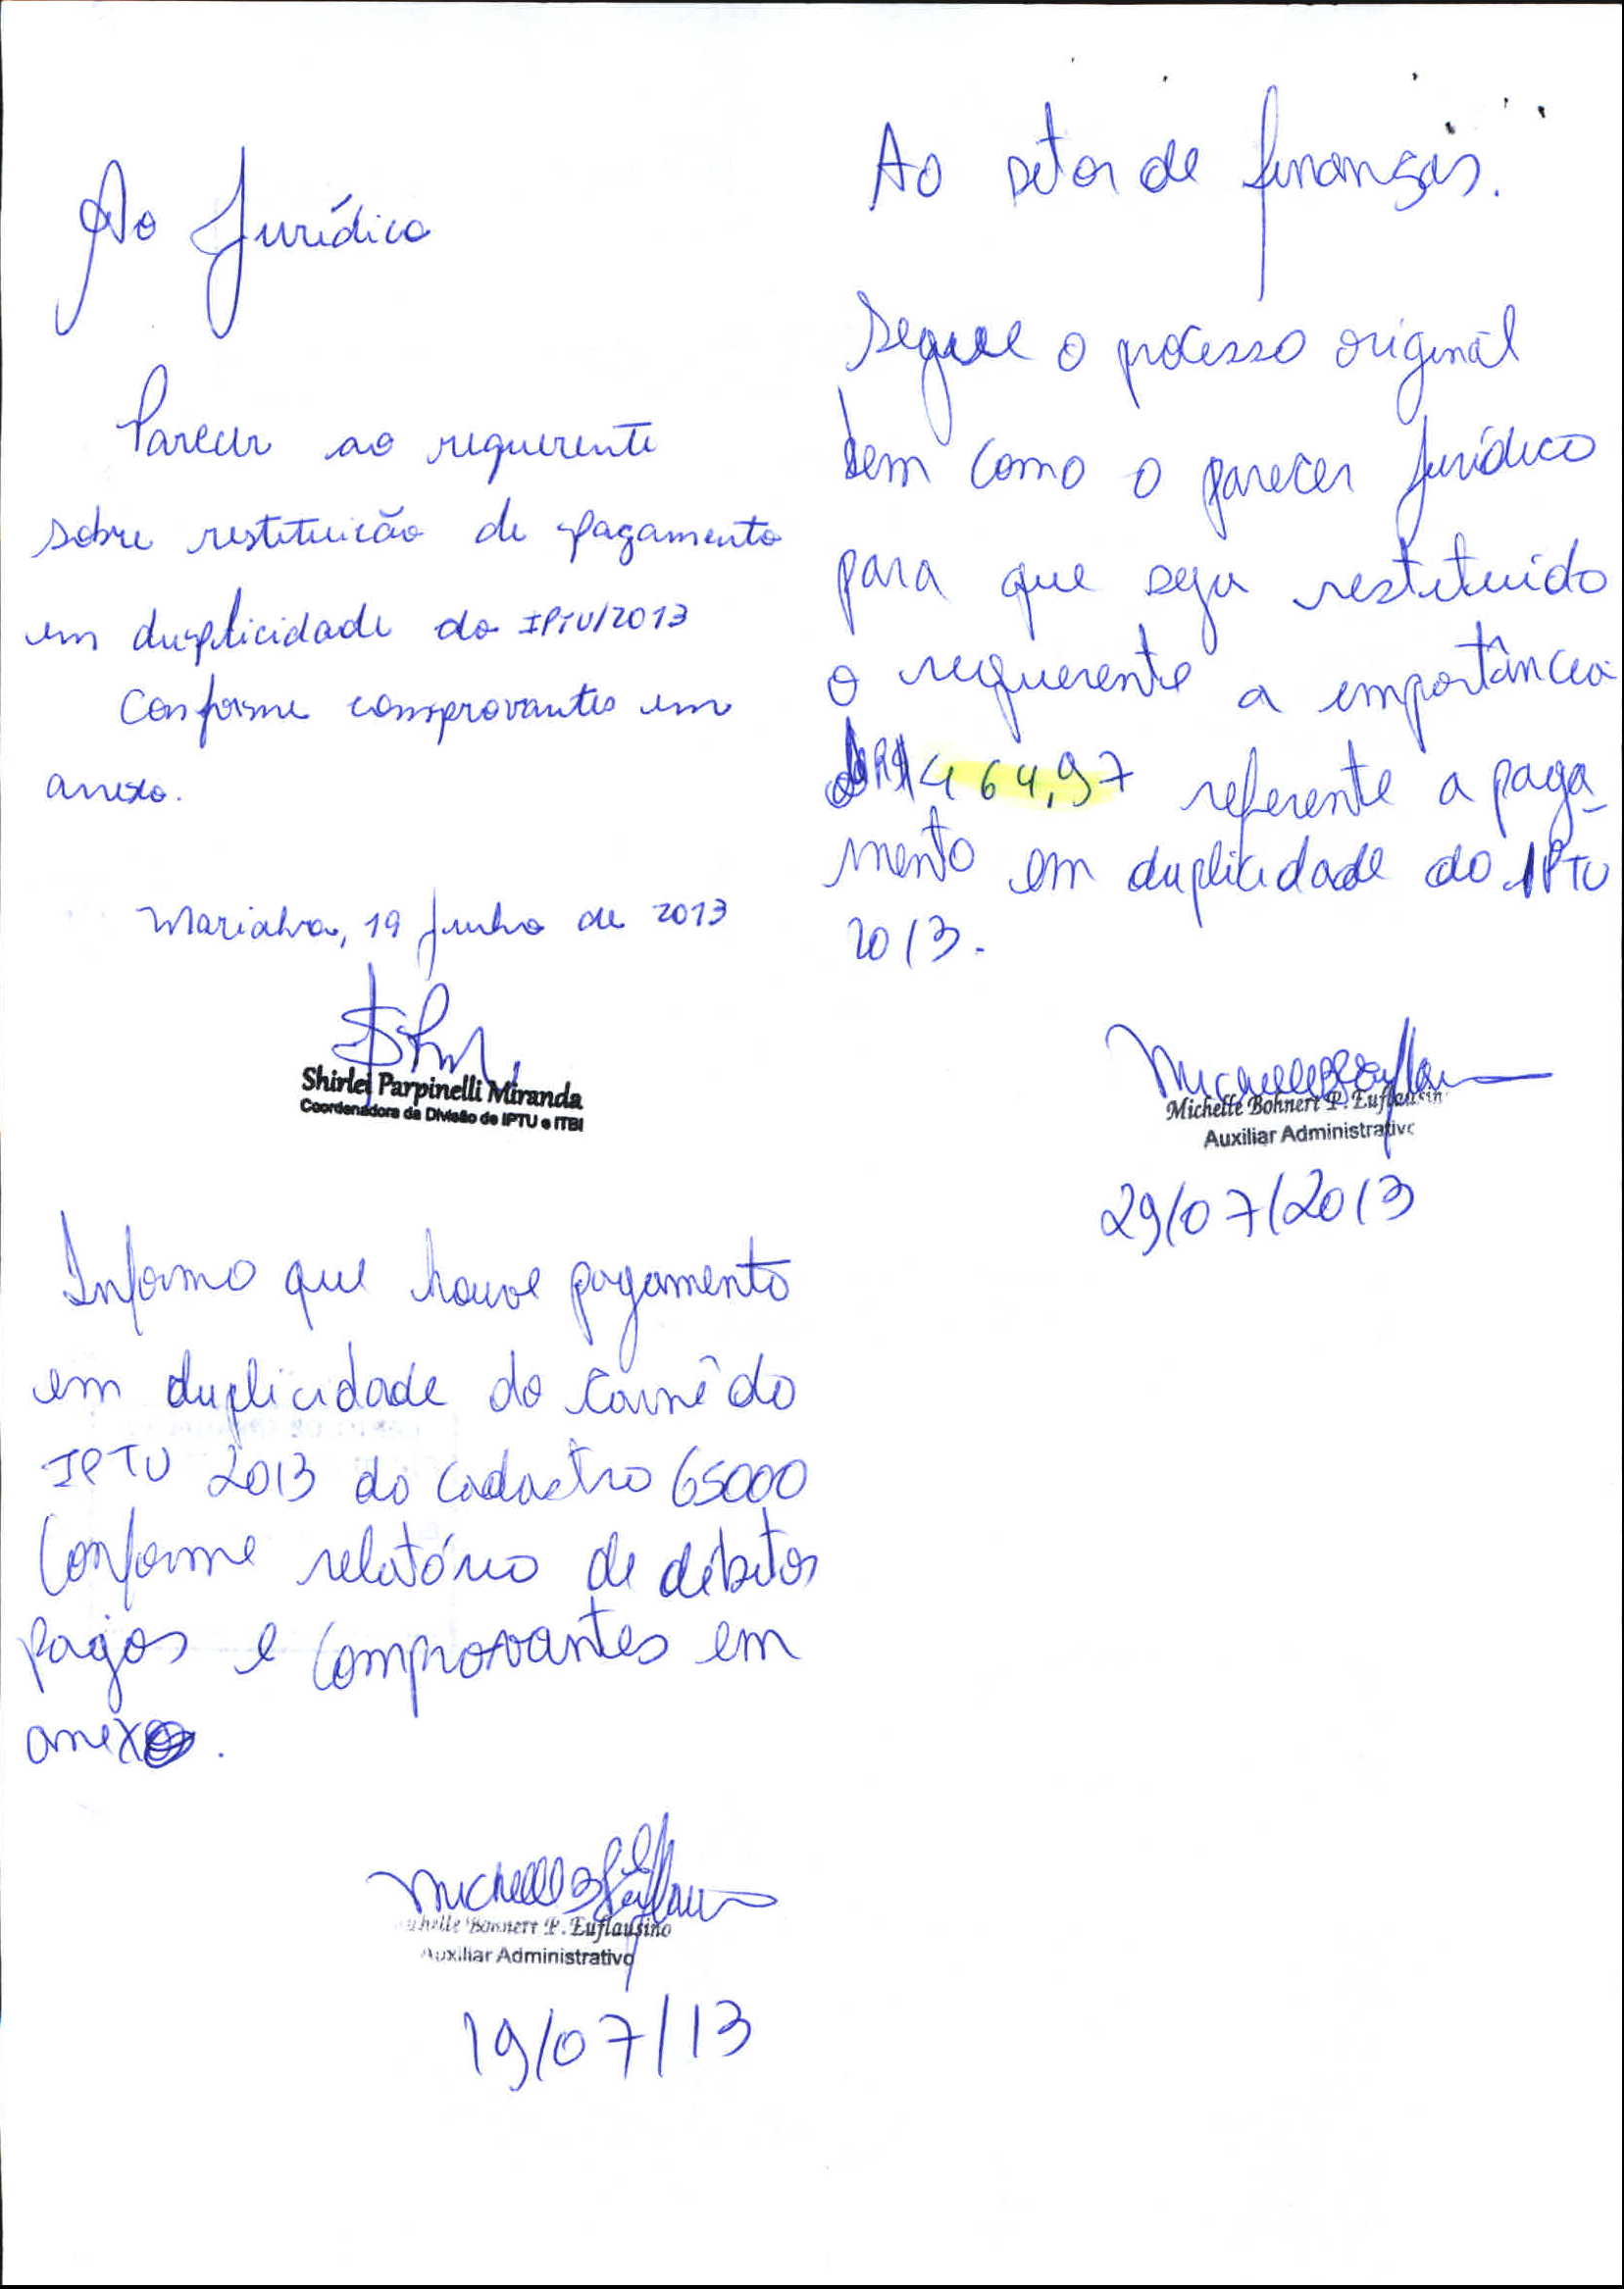 Ao Jurídico
Parecer ao requerente
sobre restituição de pagamento
em duplicidade do IPTU/2013
Conforme comprovantes em
anexo.
Marialva, 19 Junho de 2013
Shirlei Parpinelli Miranda
Coordenadora da Divisão de IPTU e ITBI
Informo que houve pagamento
em duplicidade do Carnê do
IPTU 2013 do cadastro 65000
Conforme relatório de débitos
pagos e comprovantes em
anexo.
Michelle Bohnert P. Euflausino
Auxiliar Administrativo
19/07/13
Ao setor de finanças.
Segue o processo original
bem como o parecer Jurídico
para que seja restituido
o requerente a importância
R$ 464,97 referente a paga-
mento em duplicidade do IPTU
2013.
Michelle Bohnert P. Euflausin
Auxiliar Administrativo
29/07/2013